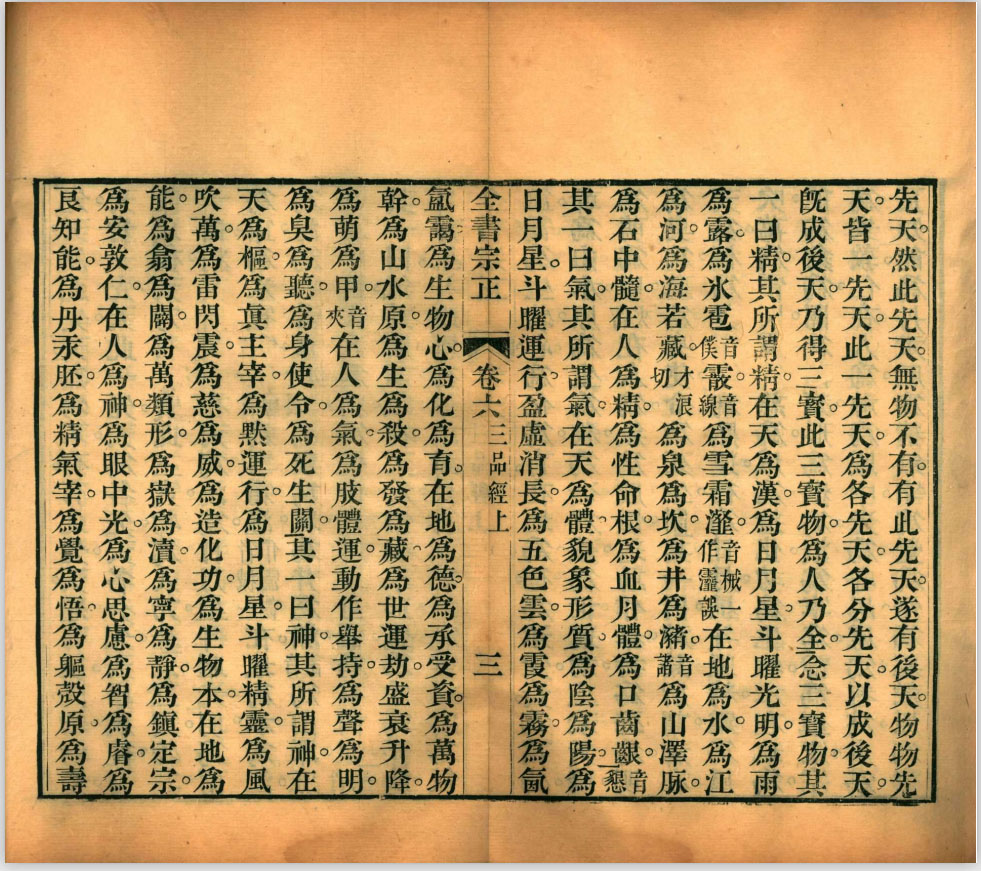 先天。然此先天。無物不有。有此先天。遂有後天。物物先
天。皆一先天。此一先天。爲各先天。各分先天。以成後天。
旣成後天。乃得三寶。此三寶物。爲人乃全。念三寶物。其
一曰精。其所謂精。在天爲漢。爲日月星。斗曜光明。爲雨
爲露。爲氷雹音僕霰音線爲雪霜瀣音械一作䨳誤在地爲水。爲江
爲河。爲海若藏才浪切爲泉爲坎。爲井爲瀦音諸爲山澤脉。
爲石中髓。在人爲精。爲性命根。爲血月體。爲口齒齦音懇
其一曰氣。其所謂氣。在天爲體。貌象形質。爲陰爲陽。爲
日月星。斗曜運行。盈虛消長。爲五色雲。爲霞爲霧。爲氤
全書宗正 卷六 三品經上 三
氳靄。爲生物心。爲化爲有。在地爲德。爲承受資。爲萬物
幹。爲山水原。爲生爲殺。爲發爲藏。爲世運劫。盛衰升降。
爲萌爲甲音夾在人爲氣。爲肢體運。動作舉持。爲聲爲明。
爲臭爲聽。爲身使令。爲死生關。其一曰神。其所謂神。在
天爲樞。爲眞主宰。爲默運行。爲日月星。斗曜精靈。爲風
吹萬。爲雷閃震。爲慈爲威。爲造化功。爲生物本。在地爲
能。爲翕爲闢。爲萬類形。爲嶽爲瀆。爲寧爲靜。爲鎭定宗。
爲安敦仁。在人爲神。爲眼中光。爲心思慮。爲智爲睿。爲
良知能。爲丹汞胚。爲精氣宰。爲覺爲悟。爲軀殼原。爲壽